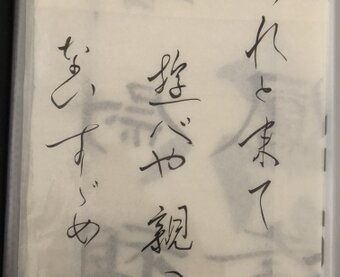 れと来て
遊べや親
ないすゞめ